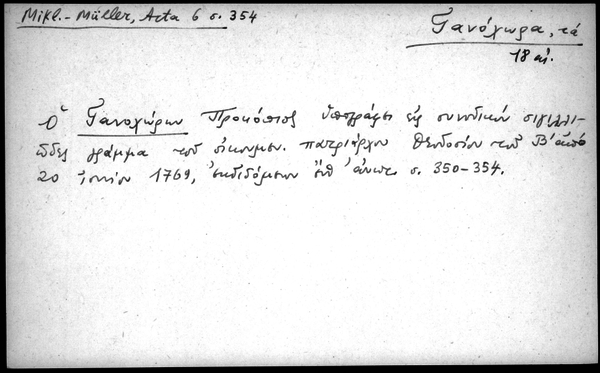 Mikl.-Müller, Acta 6 σ. 354
Γανόχωρα, τά
18 αἰ.
Ὁ Γανοχώρων Προκόπιος ὑπογράφει εἰς συνοδικὸν σιγιλλι-
ῶδες γράμμα τοῦ οἰκουμεν. πατριάρχου Θεοδοσίου τοῦ Β' ἀπὸ
20 ἰουνίου 1769, ἐκδιδόμενον ἔνθ' ἀνωτ. σ. 350-354.